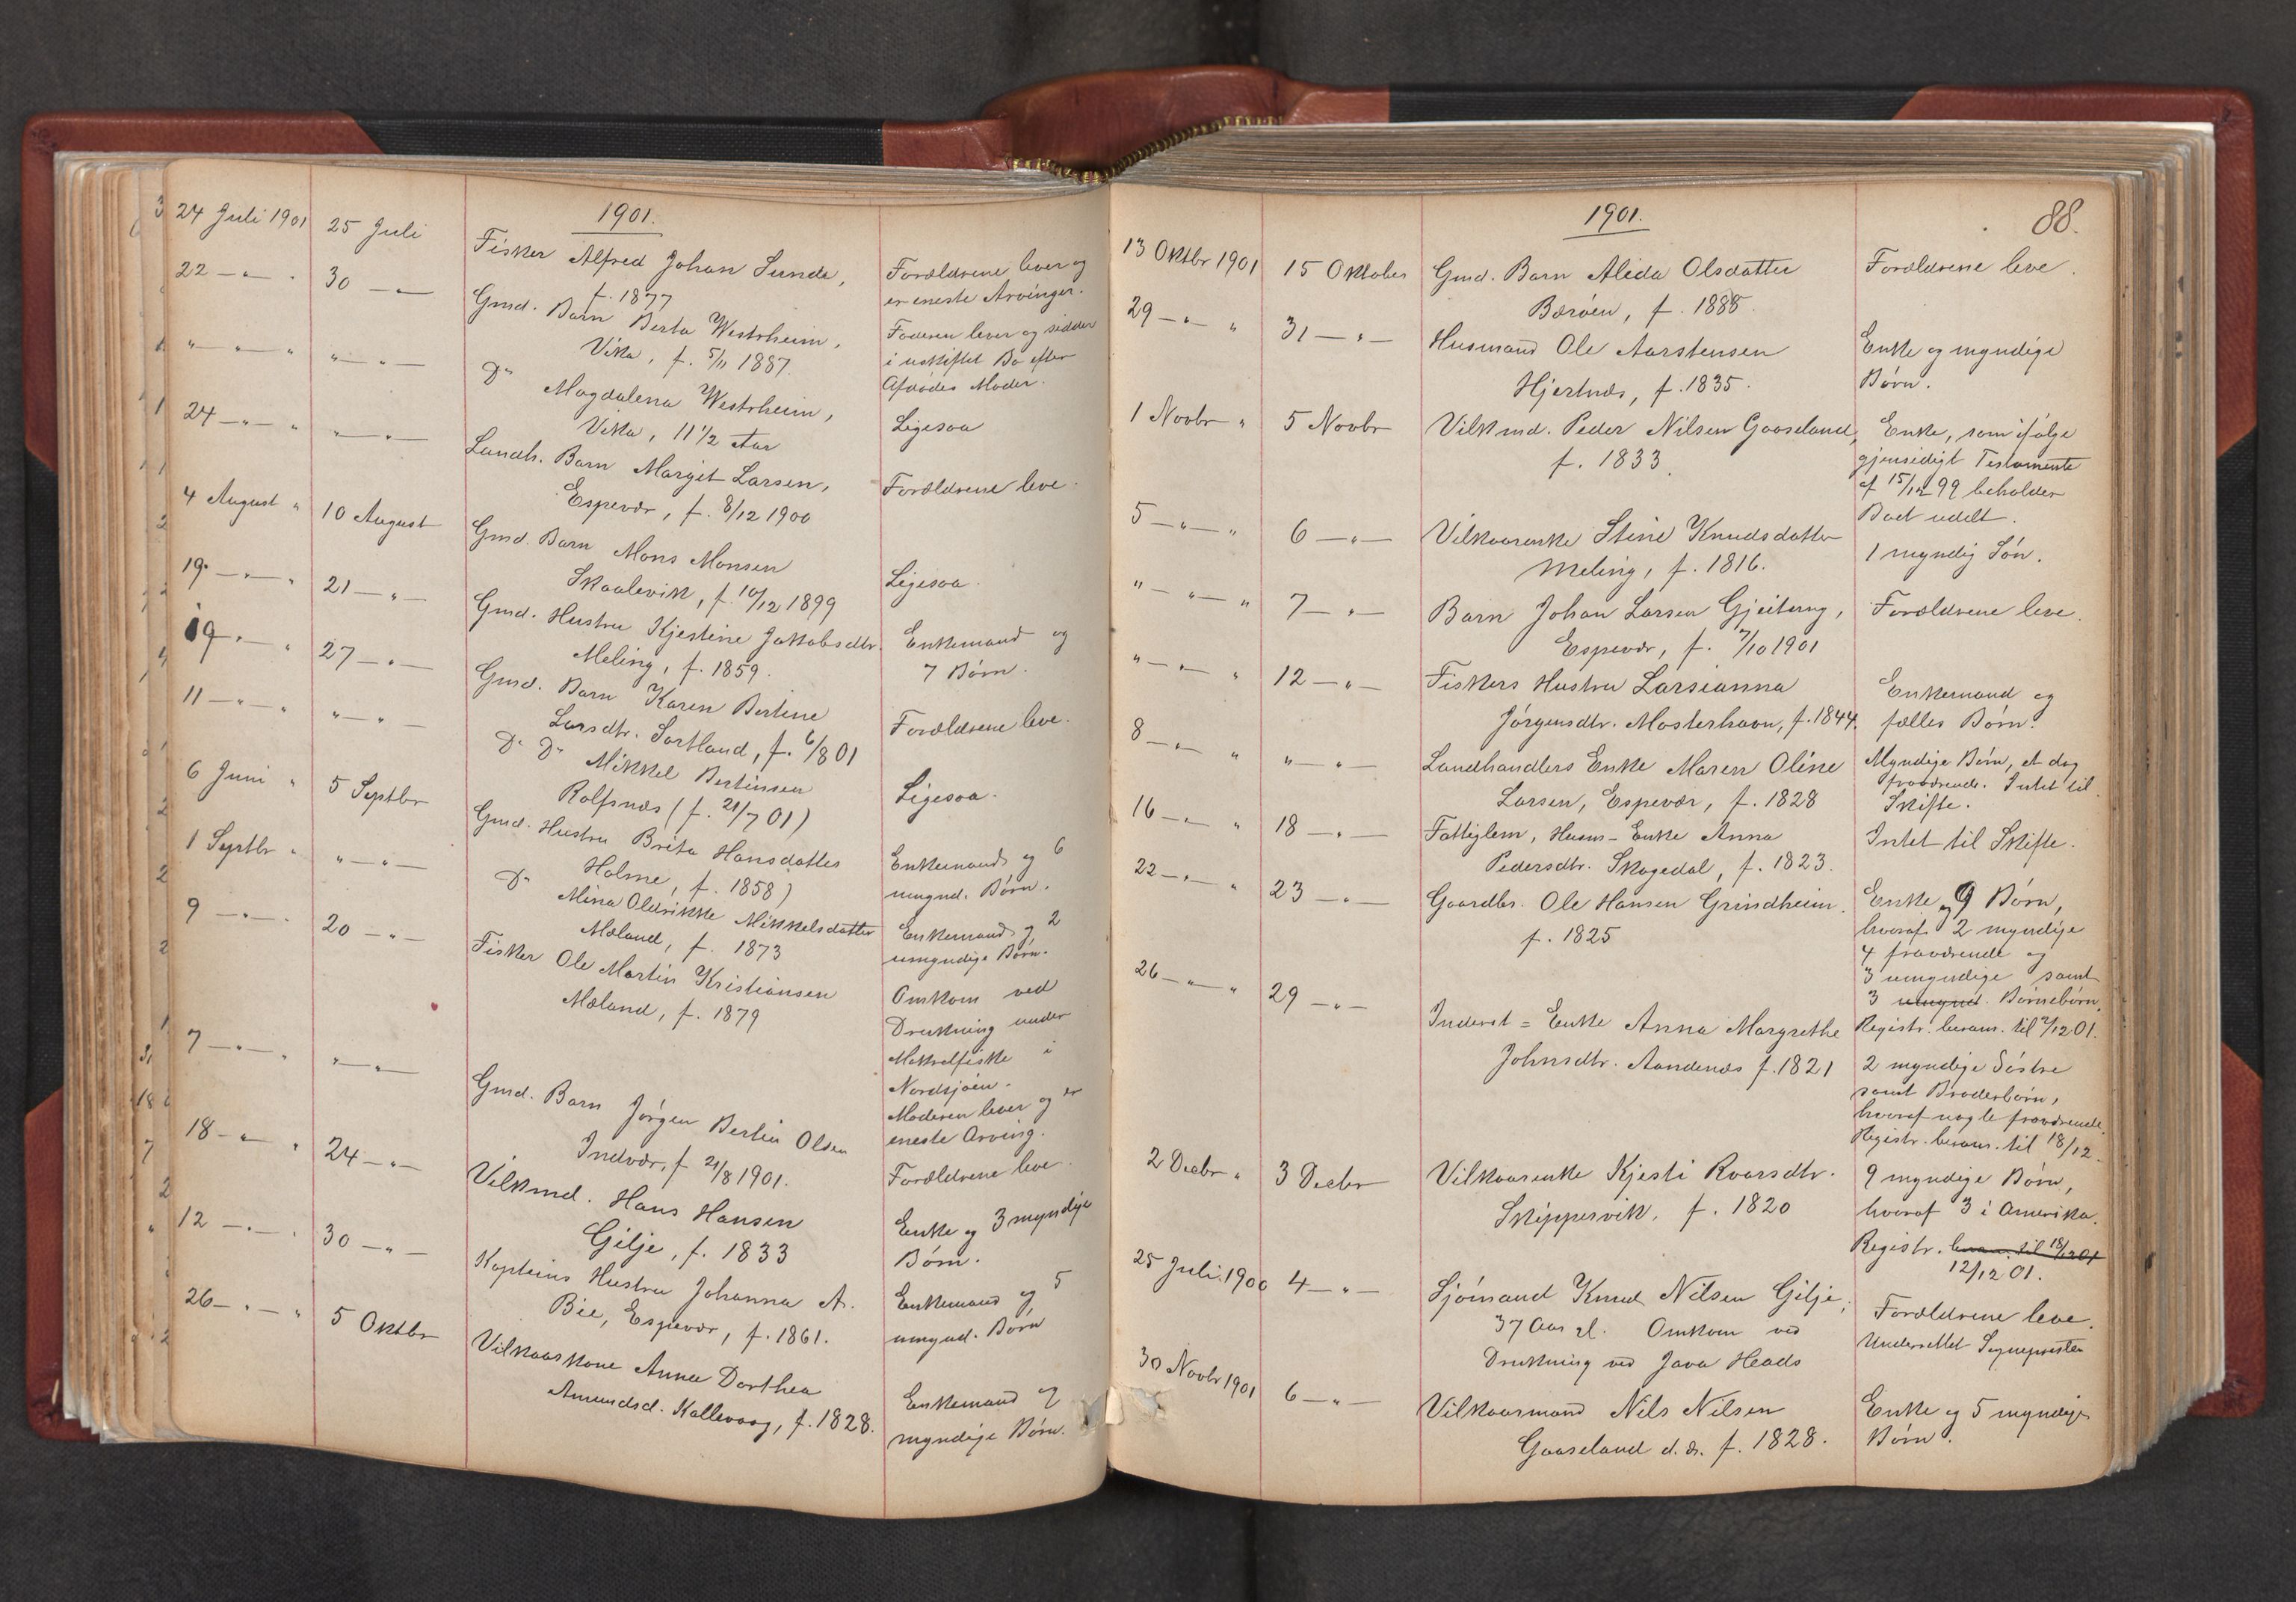 1901.
24 Juli 1901 25 Juli Fisker Alfred Johan Sunde, Forældrene lever og
f. 1877 er eneste Arvinger.
22 — " — " 30 — " — Gmd. Barn Berta Westrheim, Faderen lever og sidder
Vika, f. 5/11 1887. i uskiftet Bo efter
Afdødes Moder.
" — " — " " — " — Do Magdalena Westrheim, Ligesaa
Vika, 11 1/2 Aar
24 — " — " " — " — Landh. Barn Margit Larsen, Forældrene leve.
Espevær, f. 8/12 1900
4 August " 10 August Gmd. Barn Mons Monsen Ligesaa.
Skaalevik, f. 10/12 1899
19. — " — " 21 — " — Gmd. Hustru Kjestine Jakobsdtr. Enkemand og
Meling, f. 1859. 7 Børn.
19 — " — " 27 — " — Gmd. Barn Karen Bertine Forældrene leve.
Larsdtr. Sortland, f. 6/8 01
11 — " — " " — " — Do Do Mikkel Bertinsen Ligesaa.
Rolfsnæs (f. 21/7 01)
6 Juni " 5 Septbr Gmd. Hustru Brita Hansdatter Enkemand og 6
Holme, f. 1858) umynd. Børn.
1 Septbr " " — " — Do Mina Oldrikke Mikkelsdatter Enkemand og 2
Mæland, f. 1873 umyndige Børn.
9 — " — " 20 — " — Fisker Ole Martin Kristiansen Omkom ved
Mæland, f. 1879 Drukning under
Makrelfiske i
Nordsjøen.
Moderen lever og er
eneste Arving.
7 — " — " " — " — Gmd. Barn Jørgen Bertin Olsen Forældrene leve.
Indvær, f. 21/8 1901.
18 — " — " 24 — " — Vilkmd. Hans Hansen Enke og 3 myndige
Gilje, f. 1833 Børn.
12 — " — " 30 — " — Kapteins Hustru Johanna A. Enkemand og 5
Bie, Espevær, f. 1861. umynd. Børn
26 — " — " 5 Oktbr Vilkaarskone Anna Dorthea Enkemand og
Amundsd. Kallevaag, f. 1828. myndige Børn.
1901. 88.
13 Oktbr 1901 15 Oktober Gmd. Barn Alida Olsdatter Forældrene leve.
Børøen, f. 1885.
29 — " — " 31 — " — Husmand Ole Aarstensen Enke og myndige
Hjertnæs, f. 1835. Børn.
1 Novbr " 5 Novbr Vilkmd. Peder Nilsen Gaaseland, Enke, som ifølge
f. 1833. gjensidigt Testamente
af 15/12 99 beholder
Boet udelt.
5 — " — " 6 — " — Vilkaarenke Stine Knudsdatter 1 myndig Søn.
Meling, f. 1816.
" — " — " 7 — " — Barn Johan Larsen Gjeitung, Forældrene leve.
Espevær, f. 7/10 1901
" — " — " 12 — " — Fiskers Hustru Larsianna Enkemand og
Jørgensdtr. Mosterhavn, f. 1844. fælles Børn.
8 — " — " " — " — Landhandlers Enke Maren Oline Myndige Børn, et dog
Larsen, Espevær, f. 1828 fraværende. Intet til
Skifte.
16 — " — " 18 — " — Fattiglem, Husm-Enke Anna Intet til Skifte.
Pedersdtr. Skogedal, f. 1823.
22 — " — " 23 — " — Gaardbr. Ole Hansen Grindheim. Enke og 9 Børn,
f. 1825 hvoraf 2 myndige
4 fraværende og
3 umyndige samt
3 umynd. Børnebørn.
Registr. beram. til 2/12 01.
26 — " — " 29 — " — Inderst = Enke Anna Margrethe
Johnsdtr. Aandenæs f. 1821 2 myndige Søstre
samt Broderbørn,
hvoraf nogle fraværende.
Registr. beram. til 18/12.
2 Decbr " 3 Decbr Vilkaarenke Kjesti Roarsdtr. 9 myndige Børn,
Skippervik, f. 1820 hvoraf 3 i Amerika.
Registr. beram. til 18/12 01
12/12 01.
25 Juli 1900 4 — " — Sjømand Knud Nilsen Gilje, Forældrene leve.
37 Aar gl. Omkom ved Underrettet Sognepresten
Drukning ved Java Heads
30 Novbr 1901 6 — " — Vilkaarmand Nils Nilsen Enke og 5 myndige
Gaaseland d. æ. f. 1828. Børn.